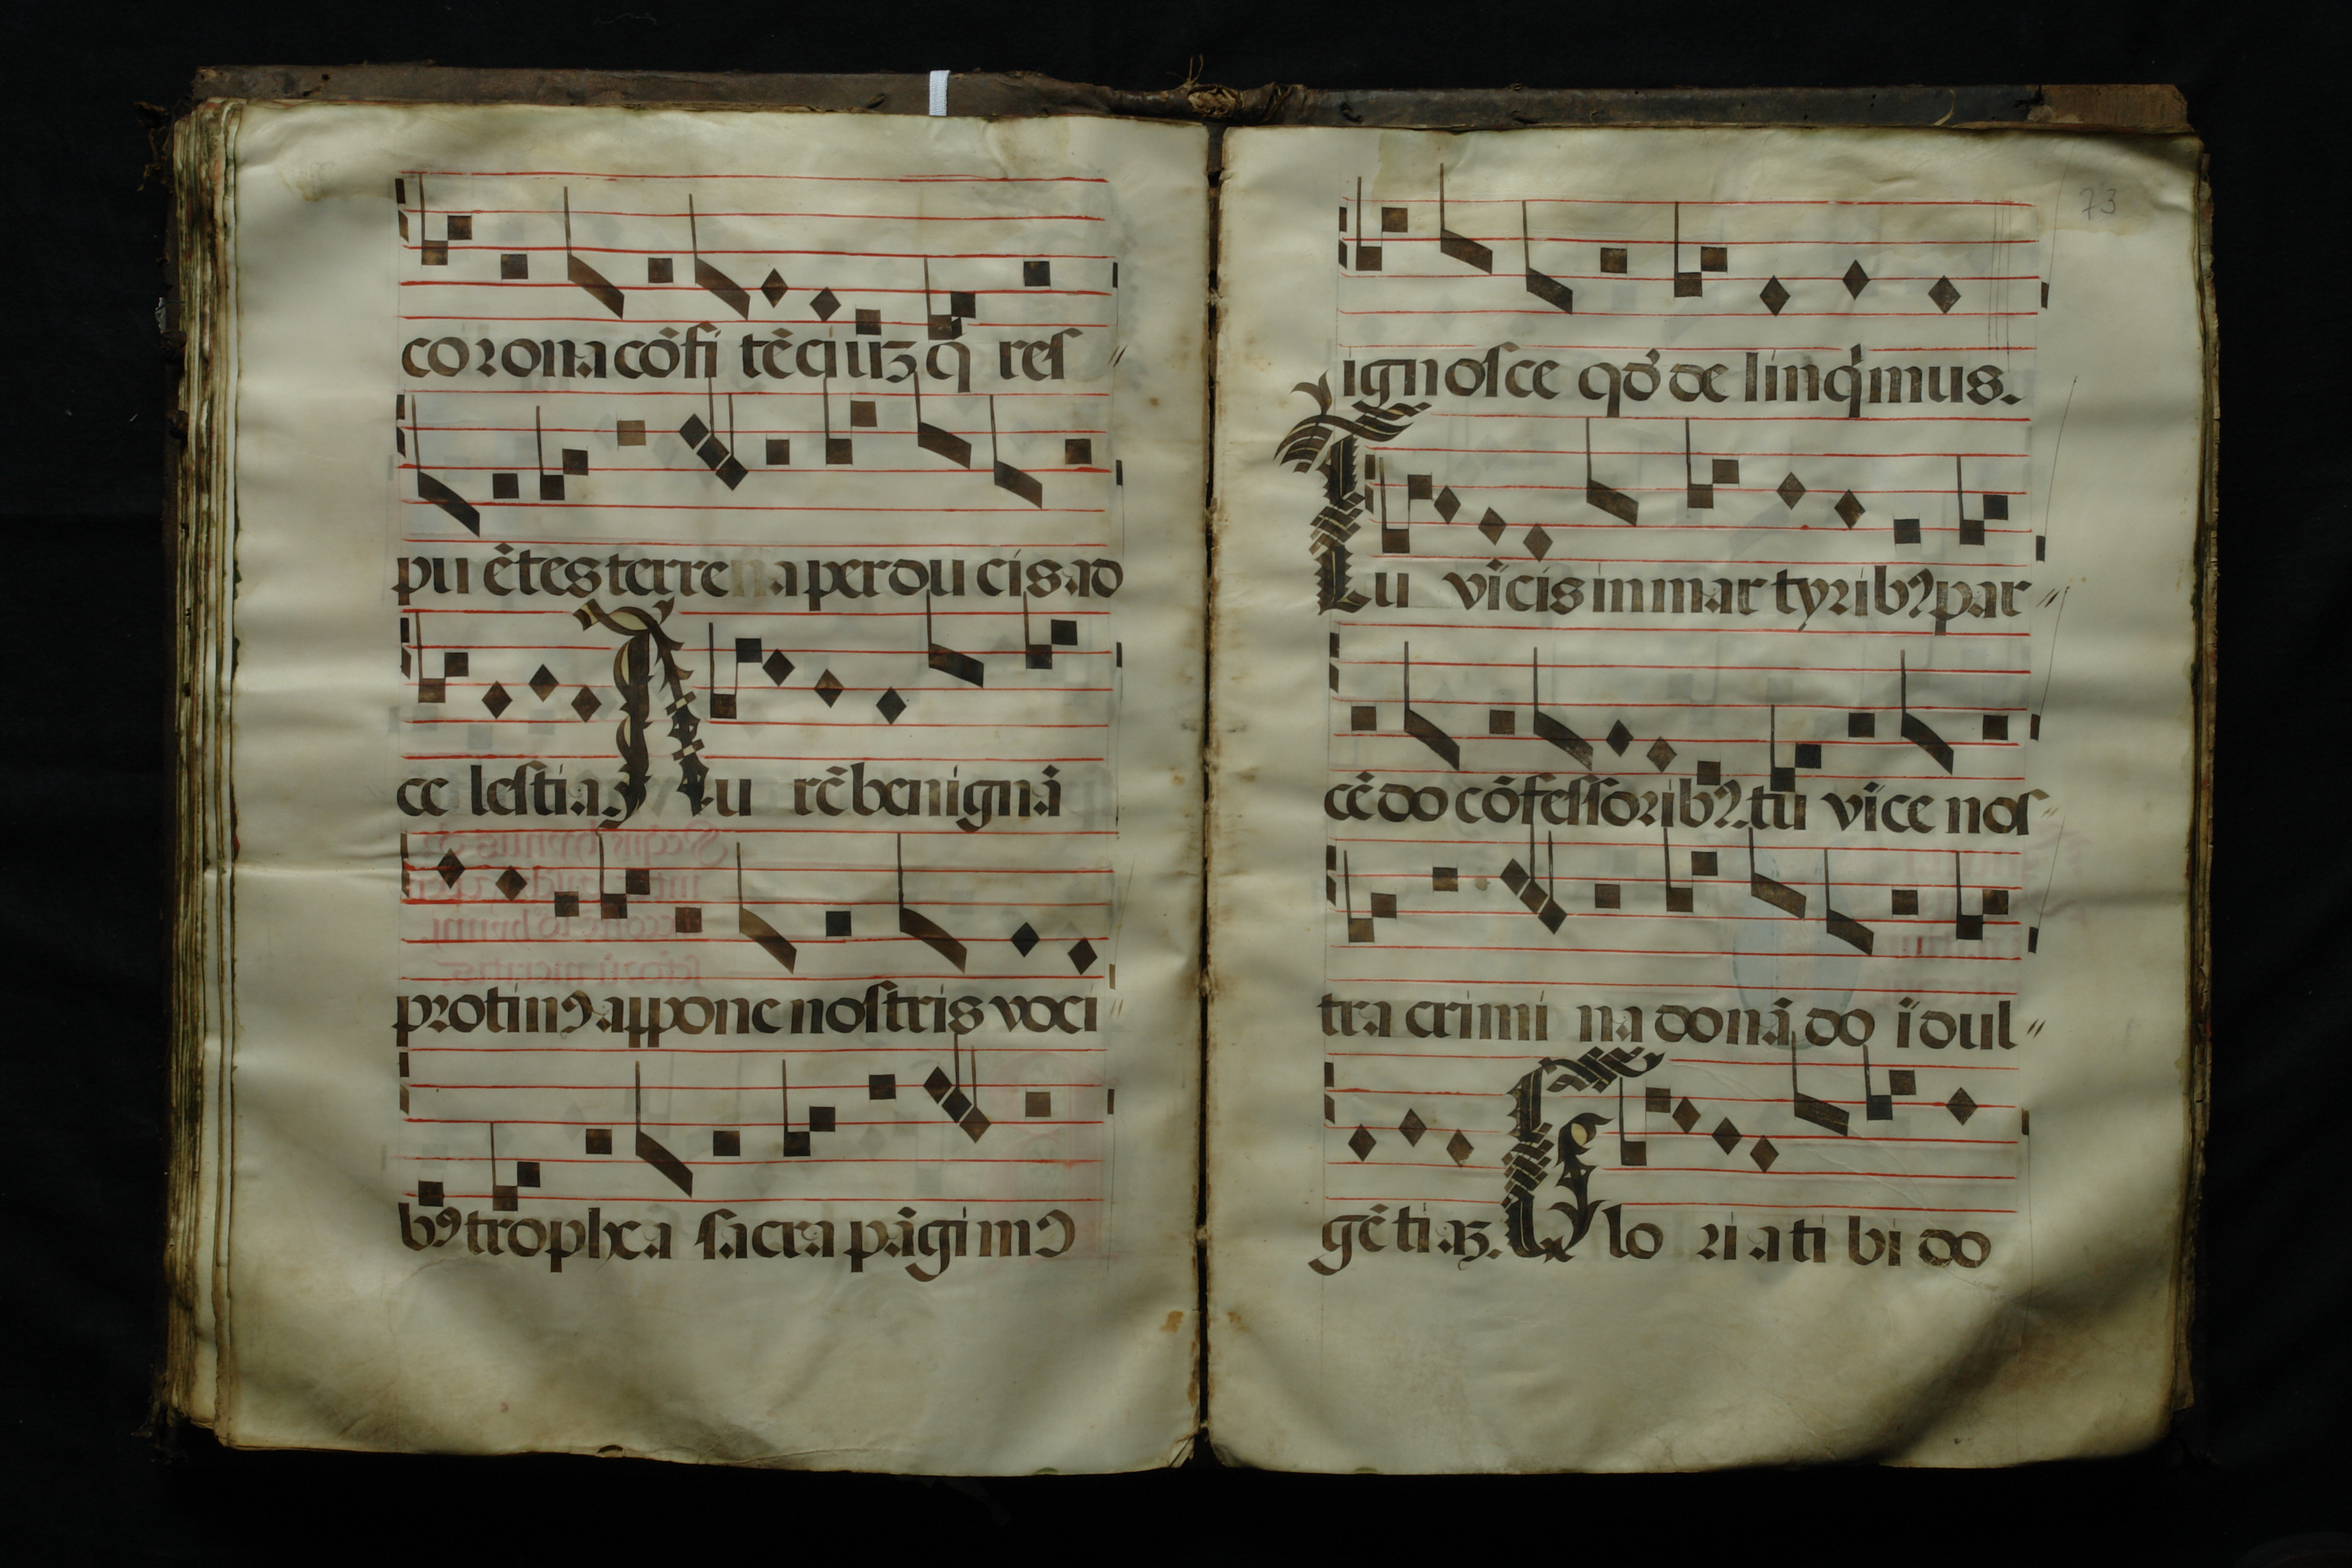 corona cōfi tēciuꝫ q̄ reſ〃
pu ētes terrena perdu cis ad
ce leſtia. Au rē benignā
protinꝯ appone noſtris voci〃
bꝯ trophea ſacra pāgimꝯ
73
ignoſce qđ de linq̇mus.
Tu vīcis in mar tyribꝯ par〃
cēdo cōfeſſoribꝯ. tu vīce noſ〃
tra crimi na donā do īdul〃
gētiaꝫ. Glo ria ti bi do